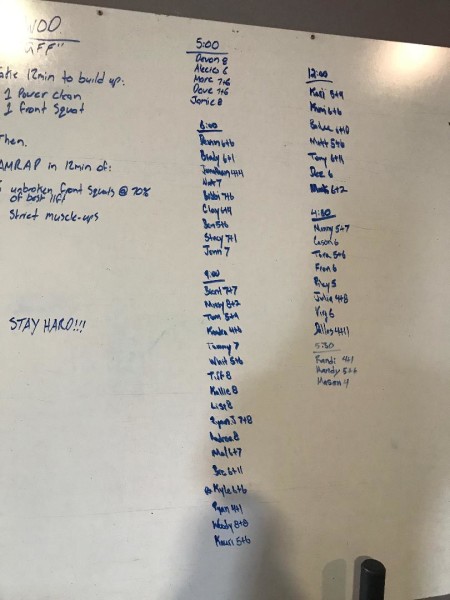 WOD
"JFF"
12min to build up:
1 Power clean
1 Front Squat
Then.
AMRAP in 12min of:
5 unbroken front squats @ 70%
of best lift
Strict muscle-ups
STAY HARD!!!
5:00
Devon 8
Alexis 6
Marc 7+6
Dave 7+6
Jamie 8
6:00
6+6
Brady 6+1
Jonathan 4+4
7
Bobbi 7+6
Clay 6+4
Ben 5+6
Stacy 7+1
Jenn 7
9:00
7+7
Missy 8+2
Tom 5+4
4+6
Tammy 7
Whit 5+6
Tiff 8
Kallie 8
Lisa 8
Ryan J. 7+8
Andrea 8
Mal 6+7
6+11
Kyle 6+6
Ryan 4+1
Wendy 8+8
5+6
12:00
5+4
6+6
6+10
Matt 5+6
Tony 6+11
Dee 6
6+2
4:30
Manny 5+7
Cason 6
Tara 5+6
Fran 6
5
Julia 4+8
6
Dallas 4+11
5:30
Randi 4+1
Mandy 5+4
Mason 4